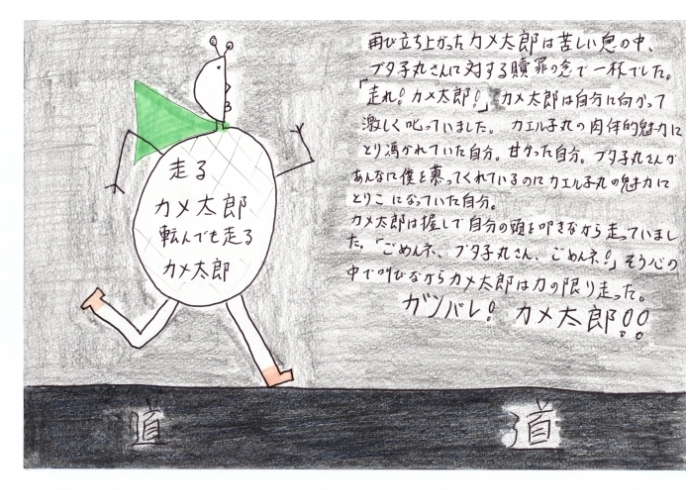 再び立ち上がったカメ太郎は苦しい息の中、
ブタ子丸さんに対する贖罪の念で一杯でした。
「走れ!カメ太郎!」カメ太郎は自分に向かって
激しく叱っていました。カエル子丸の肉体的魅力に
とり憑かれていた自分。甘かった自分。ブタ子丸さんが
あんなに僕を慕ってくれているのにカエル子丸の魅力に
とりこになっていた自分。
カメ太郎は握して自分の頭を叩きながら走っていまし
た。「ごめんネ、ブタ子丸さん、ごめんネ!」そう心の
中で叫びながらカメ太郎は力の限り走った。
ガンバレ!カメ太郎!!
走る
カメ太郎
転んでも走る
カメ太郎
道
道